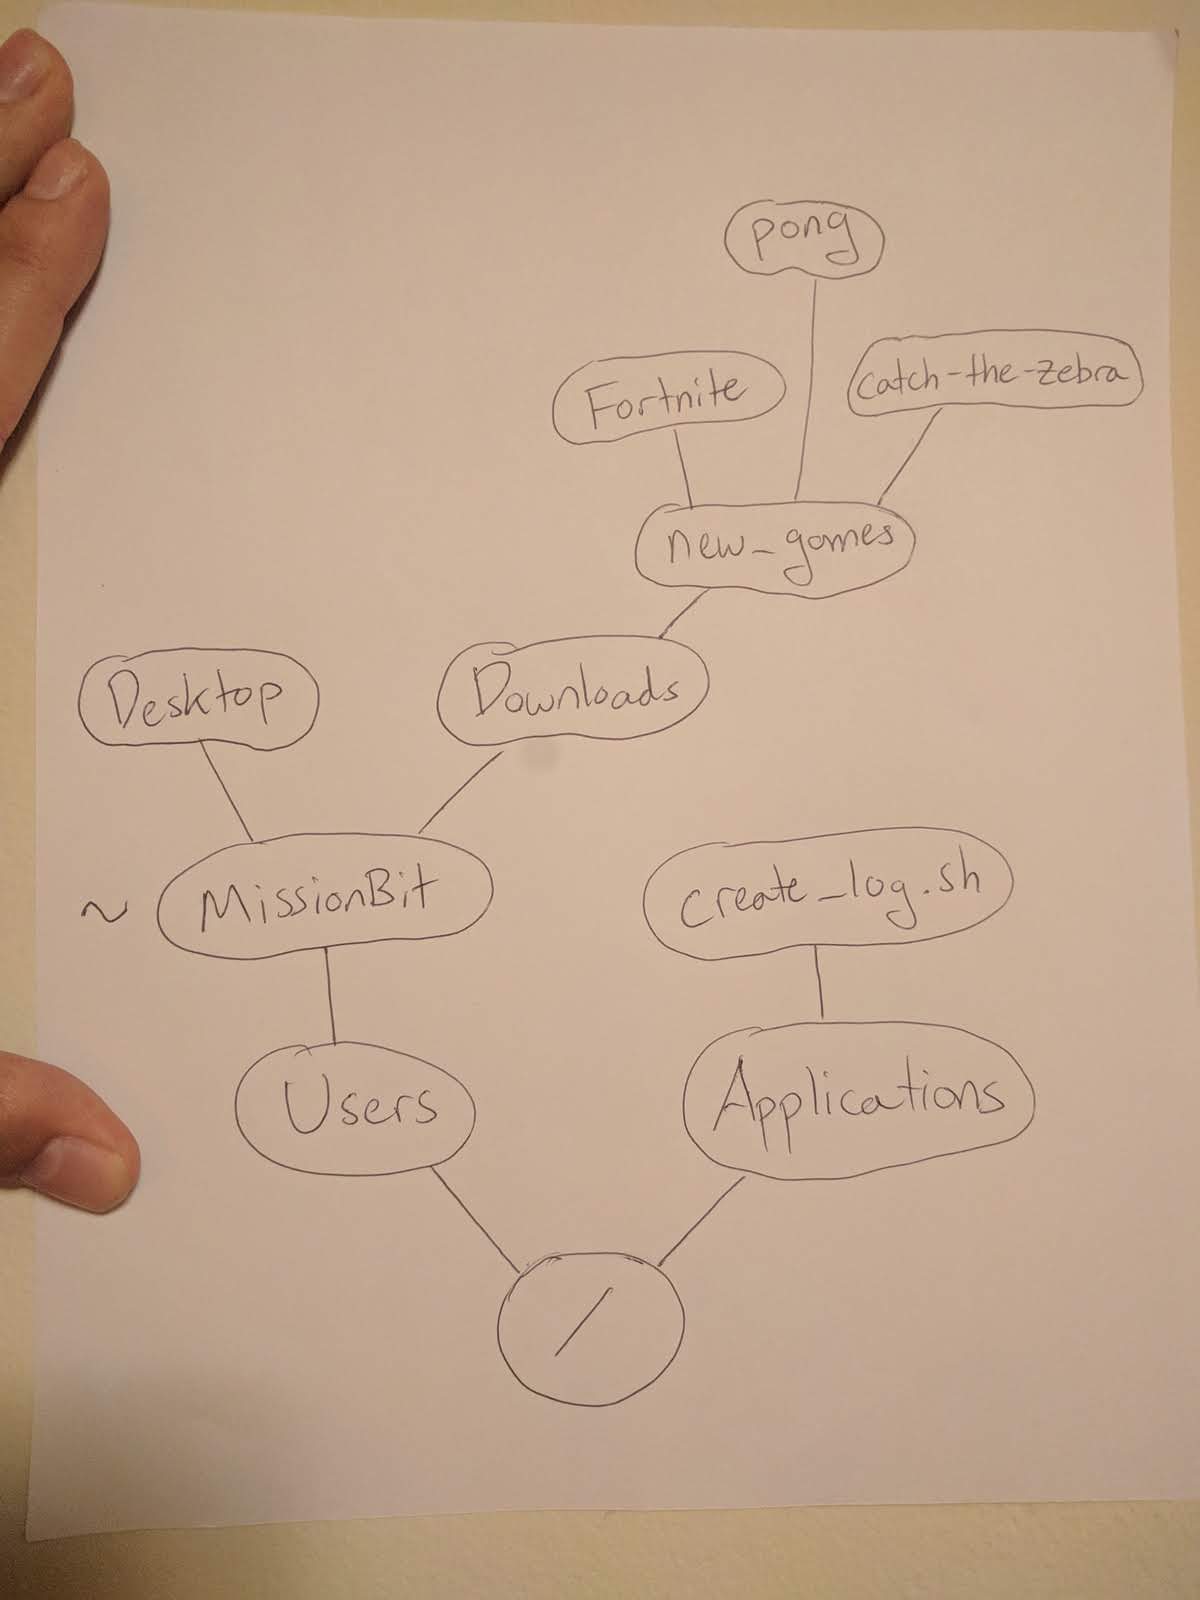 pong
Fortnite
catch-the-zebra
new_games
Desktop
Downloads
~ MissionBit
create_log.sh
Users
Applications
/